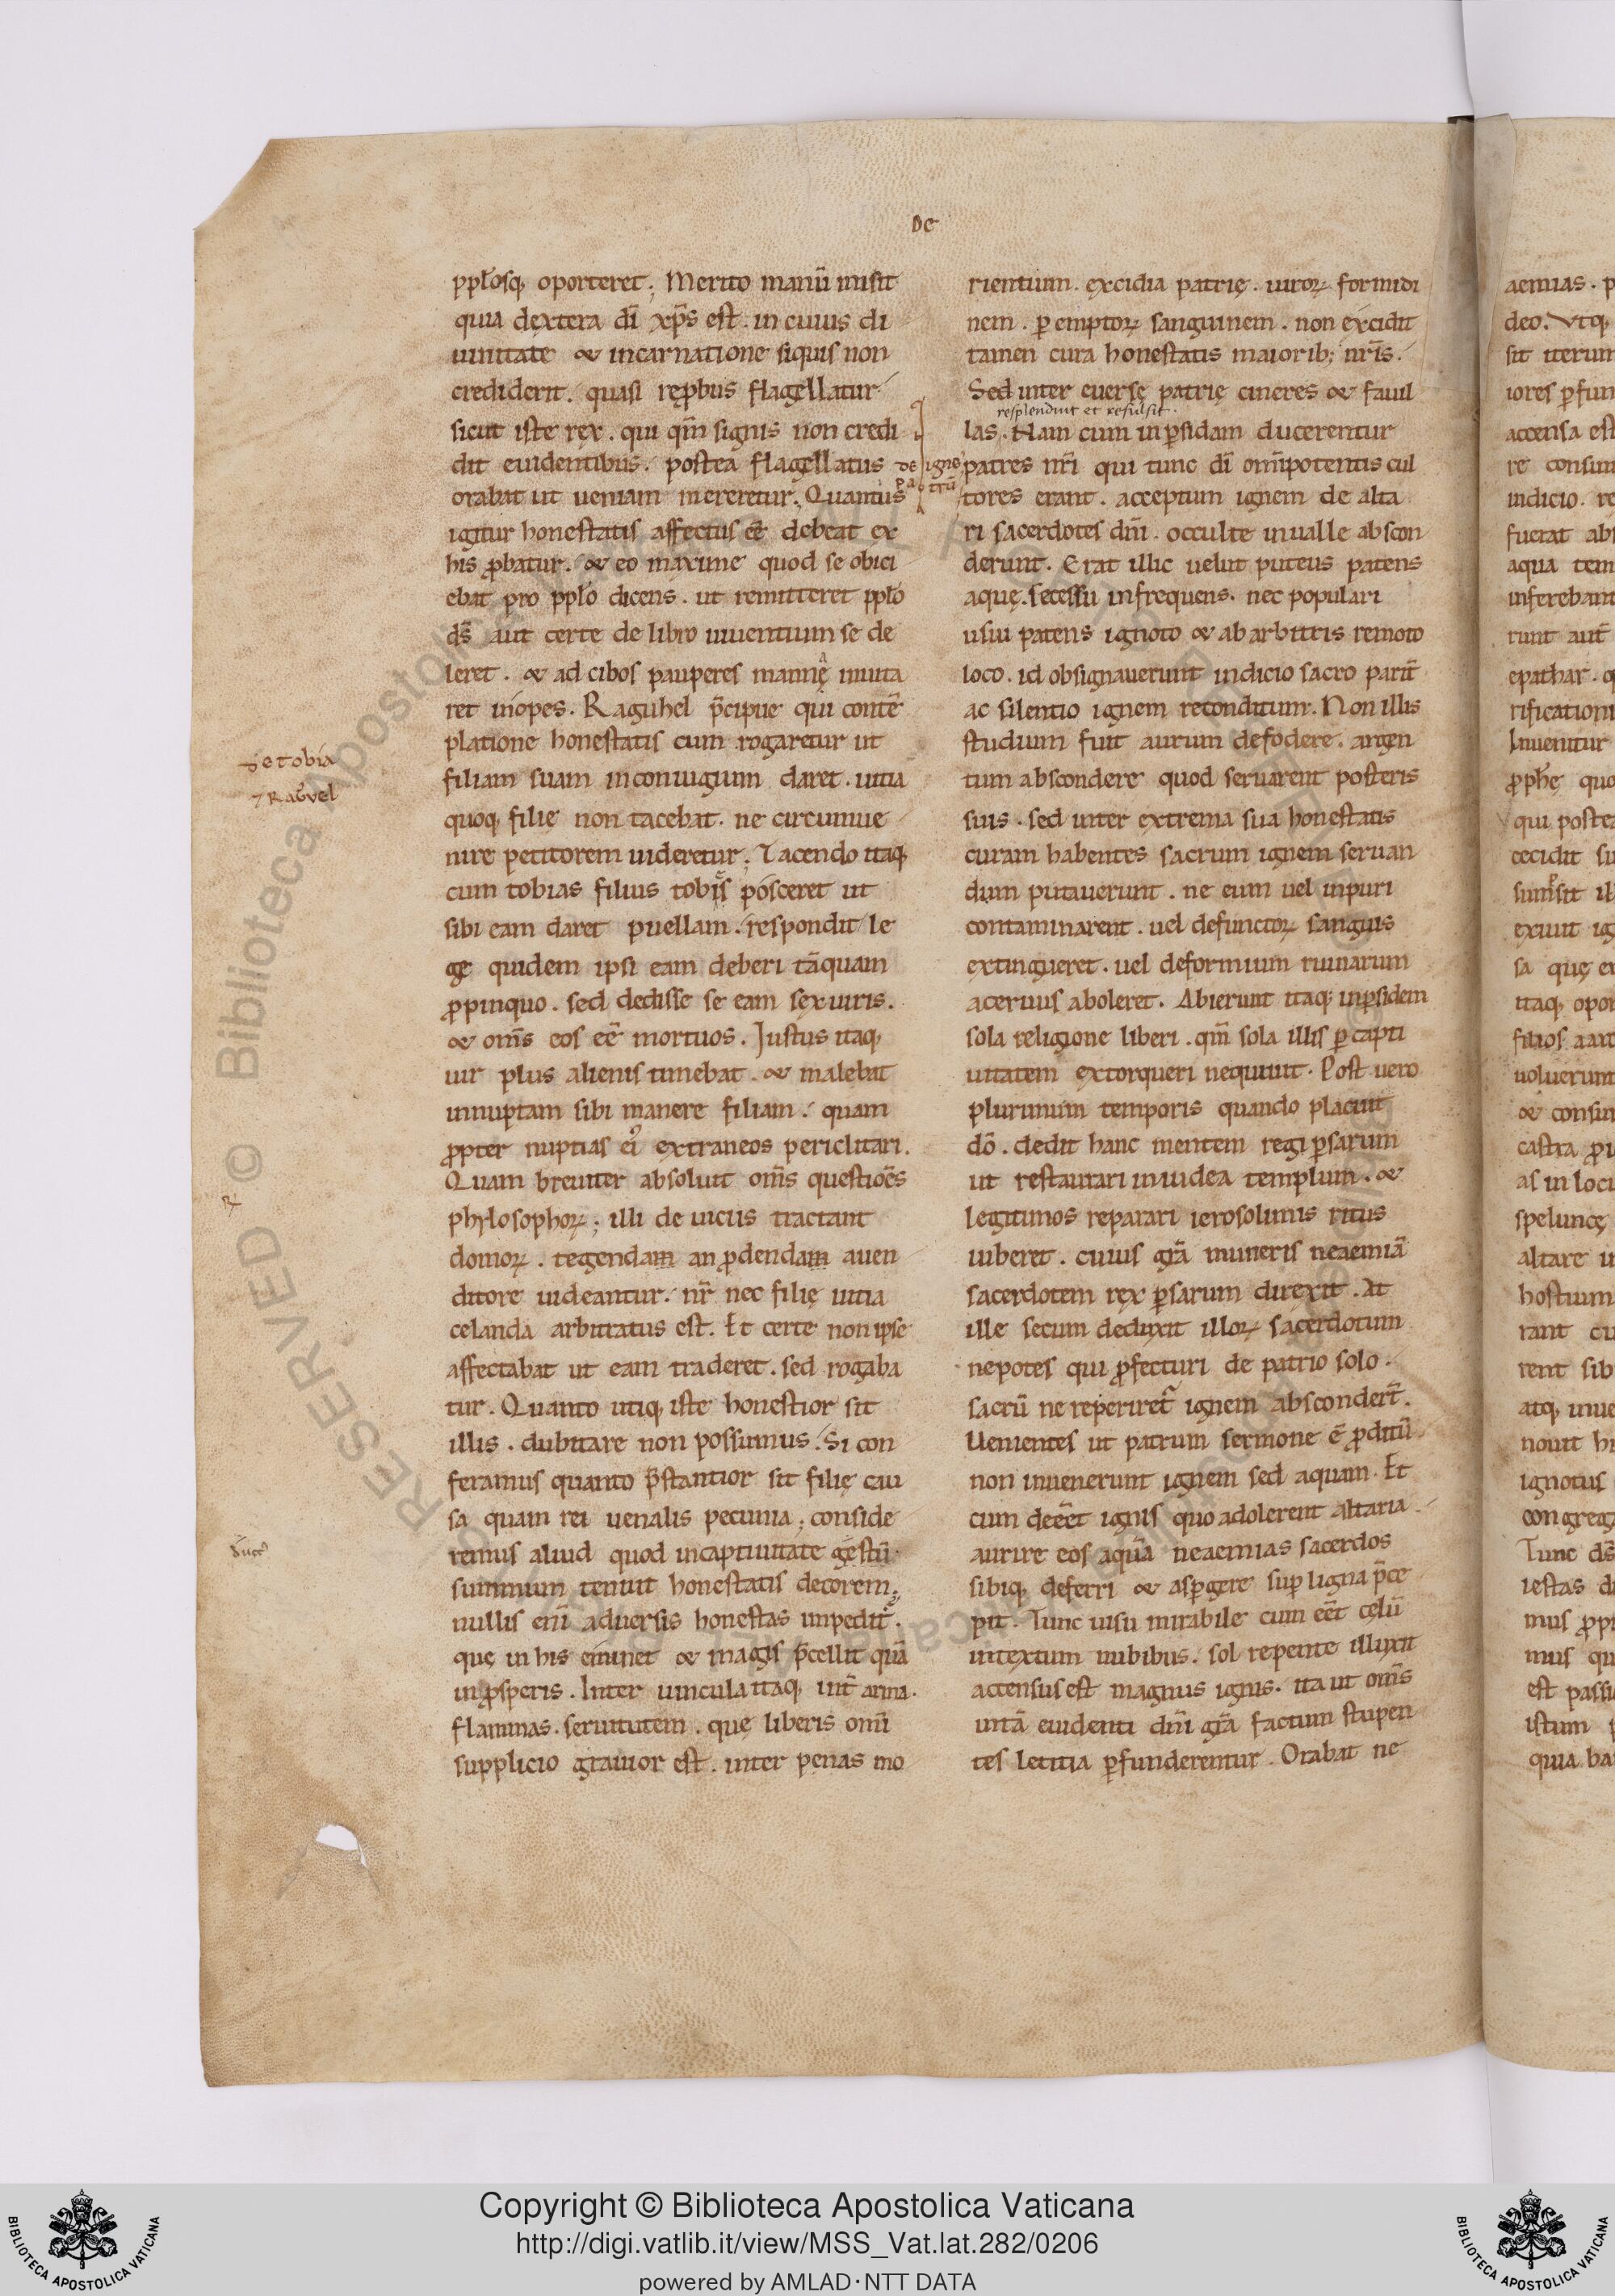 De
pplosq; oporteret; Merito manū misit
quia dextera dī xp̄s est. in cuius di
uinitate & incarnatione siquis non
crediderit. quasi rep̄bus flagellatur
sicut iste rex. qui qm̄ signis non credi
dit euidentibus. postea flagellatus
orabat ut ueniam mereretur. Quantus
igitur honestatis affectus eē debeat ex
his p̄batur. & eo maxime quod se obici
ebat pro pplo dicens. ut remitteret pplo
ds̄ aut certe de libro uiuentium se de
leret. & ad cibos pauperes mannę inuita
ret inopes. Raguhel p̄cipue qui contē
platione honestatis cum rogaretur ut
filiam suam inconiugium daret. uitia
quoq; filię non tacebat. ne circumue
nire petitorem uideretur; Tacendo itaq;
cum tobias filius tobis posceret ut
sibi eam daret puellam. respondit le
ge quidem ipsi eam deberi tāquam
p̄pinquo. sed dedisse se eam sexuiris.
& om̄s eos eē mortuos. Justus itaq;
uir plus alienis timebat. & malebat
innuptam sibi manere filiam. quam
p̄pter nuptias ei extraneos periclitari.
Quam breuiter absoluit om̄s questiōes
phylosophoꝝ; illi de uiciis tractant
domoꝝ. tegendam an p̄dendam auen
ditore uideantur. nr̄ nec filię uitia
celanda arbitratus est. Et certe non ipse
affectabat ut eam traderet. sed rogaba
tur. Quanto utiq; iste honestior sit
illis. dubitare non possumus. Si con
feramus quanto p̄stantior sit filię cau
sa quam rei uenalis pecunia; conside
remus aliud quod incaptiuitate gestū
summum tenuit honestatis decorem;
nullis eni aduersis honestas impedit.
quę in his eminet & magis p̄cellit quā
inp̄speris. Inter uincula itaq; int̄ arma.
flammas. seruitutem. quę liberis omi
supplicio grauior est. inter penas mo
De tobia
7 Raguel
De igne
patrū
rientium. excidia patrię. uiuoꝝ formidi
nem. p̄emptoꝝ sanguinem. non excidit
tamen cura honestatis maiorib; nr̄is.
Sed inter euersę patrię cineres & fauil
resplenduit et refulsit.
las. Nam cum inp̄sidam ducerentur
patres nr̄i qui tunc dī omīpotentis cul
tores erant. acceptum ignem de alta
ri sacerdotes dn̄i. occulte inualle abscon
derunt. Erat illic uelut puteus patens
aquę. secessu infrequens. nec populari
usui patens ignoto & ab arbitris remoto
loco. id obsignauerunt indicio sacro parit̄
ac silentio ignem reconditum. Non illis
studium fuit aurum defodere. argen
tum abscondere quod seruarent posteris
suis. sed inter extrema sua honestatis
curam habentes sacrum ignem seruan
dum putauerunt. ne eum uel inpuri
contaminarent. uel defunctoꝝ sanguis
extingueret. uel deformium ruinarum
aceruus aboleret. Abierunt itaq; inp̄sidem
sola religione liberi. qm̄ sola illis p̄ capti
uitatem extorqueri nequiuit. Post uero
plurimum temporis quando placuit
dō. dedit hanc mentem regi p̄sarum
ut restaurari iniudea templum. &
legitimos reparari ierosolimis ritus
iuberet. cuius gr̄a muneris neaemiā
sacerdotem rex p̄sarum direxit. At
ille secum deduxit illoꝝ sacerdotum
nepotes qui p̄fecturi de patrio solo.
sacrū ne reperiret ignem absconder̄t.
Uenientes ut patrum sermone ē p̄ditū
non inuenerunt ignem sed aquam. Et
cum deēet ignis quo adolerent altaria
aurire eos aquā neaemias sacerdos
sibiq; deferri & asp̄gere sup̄ ligna p̄ce
pit. Tunc uisu mirabile cum eēt celū
intextum nubibus. sol repente illuxit
accensus est magnus ignis. ita ut om̄s
intā euidenti dn̄i gr̄a factum stupen
tes letitia p̄funderentur. Orabat ne
Copyright © Biblioteca Apostolica Vaticana
http://digi.vatlib.it/view/MSS_Vat.lat.282/0206
powered by AMLAD·NTT DATA
BIBLIOTECA APOSTOLICA VATICANA
BIBLIOTECA APOSTOLICA VATICANA